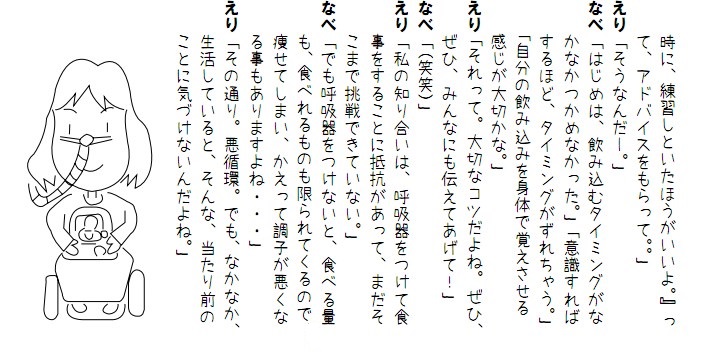 時に、練習しといたほうがいいよ。』っ
て、アドバイスをもらって。。」
えり「そうなんだー。」
なべ「はじめは、飲み込むタイミングがな
かなかつかめなかった。」「意識すれば
するほど、タイミングがずれちゃう。」
「自分の飲み込みを身体で覚えさせる
感じが大切かな。」
えり「それって。大切なコツだよね。ぜひ、
ぜひ、みんなにも伝えてあげて！」
なべ「（笑笑）」
えり「私の知り合いは、呼吸器をつけて食
事をすることに抵抗があって、まだそ
こまで挑戦できていない。」
なべ「でも呼吸器をつけないと、食べる量
も、食べれるものも限られてくるので
痩せてしまい、かえって調子が悪くな
る事もありますよね・・・」
えり「その通り。悪循環。でも、なかなか、
生活していると、そんな、当たり前の
ことに気づけないんだよね。」